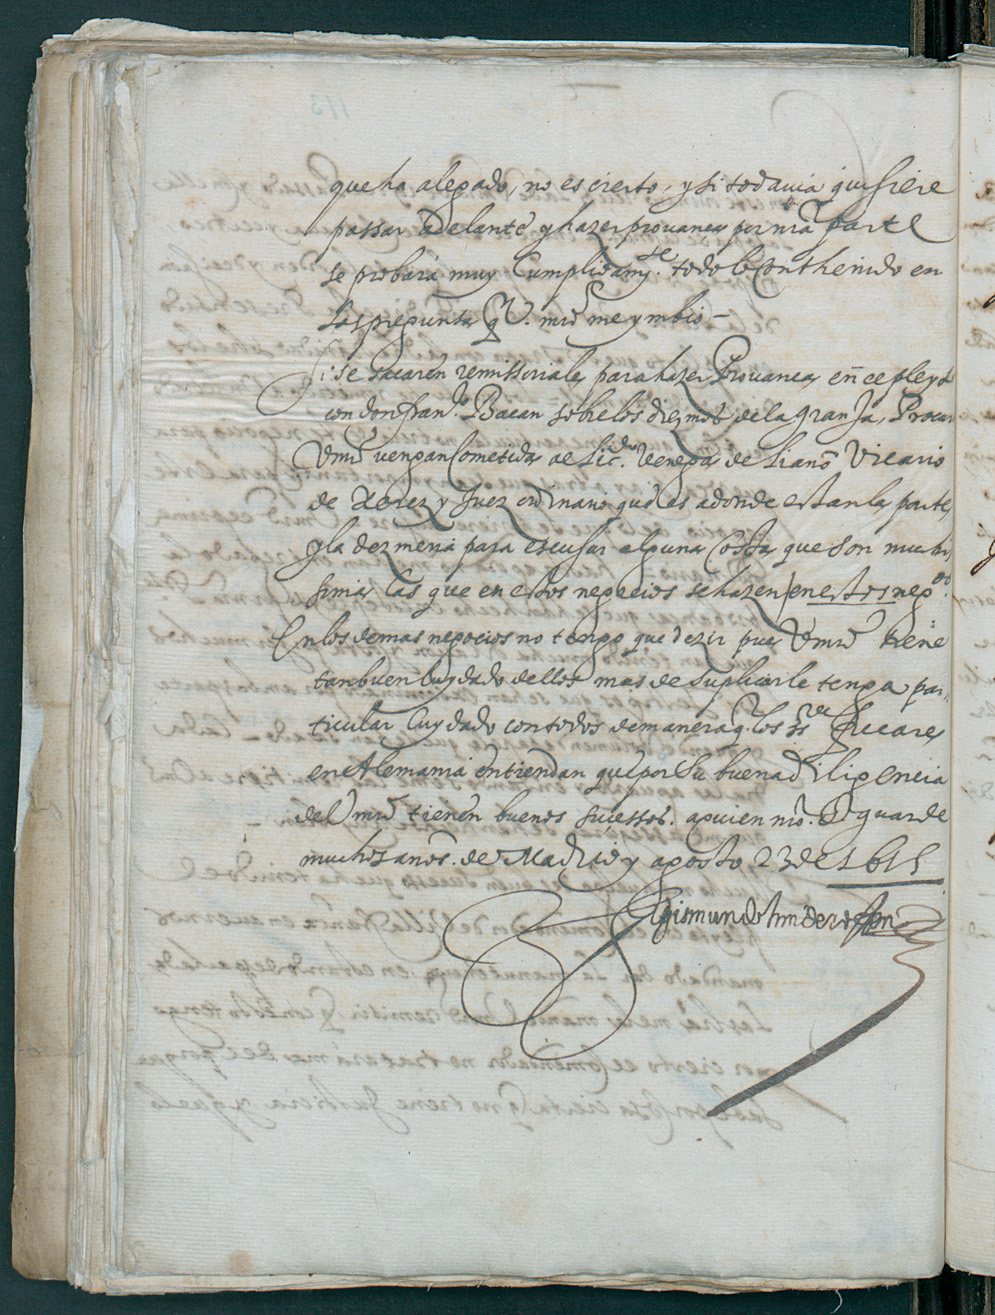 que ha alegado, no es cierto, y si todauia quisiere
passar adelante y hazer prouança por nrã parte
se probarà muy Cumplidamte. todo lo Conthenido en
las preguntas q̃ V. mrd̃ me ymbio –
Si se sacaren remissoriales para hazer Prouanças en ce pleyto
con don fran.co Bacan sobre los diezmos de la granja, Procure
Vmrd̃ vengan Cometidas al Lic.do Venegas de Liaño Vicario
de Xerez y Juez ordinario qués adonde estan las partes,
y la dezmeria para escusar algunas Costas que son muchi,
simas las que en estos negocios se hazen / en estos neg.os
En los demas negocios no tengo que dezir pues Vmrd̃ tiene
tan buen cuydado dellos mas de suplicarle tenga par,
ticular cuydado con todos de manera q̃ los ss.res fucares
en Alemania entiendan qué por su buena diligencia
de Vmrd̃ tienen buenos sucessos. a quien nrõ. Sr guarde
muchos años. de Madrid y agosto 23 de 1615